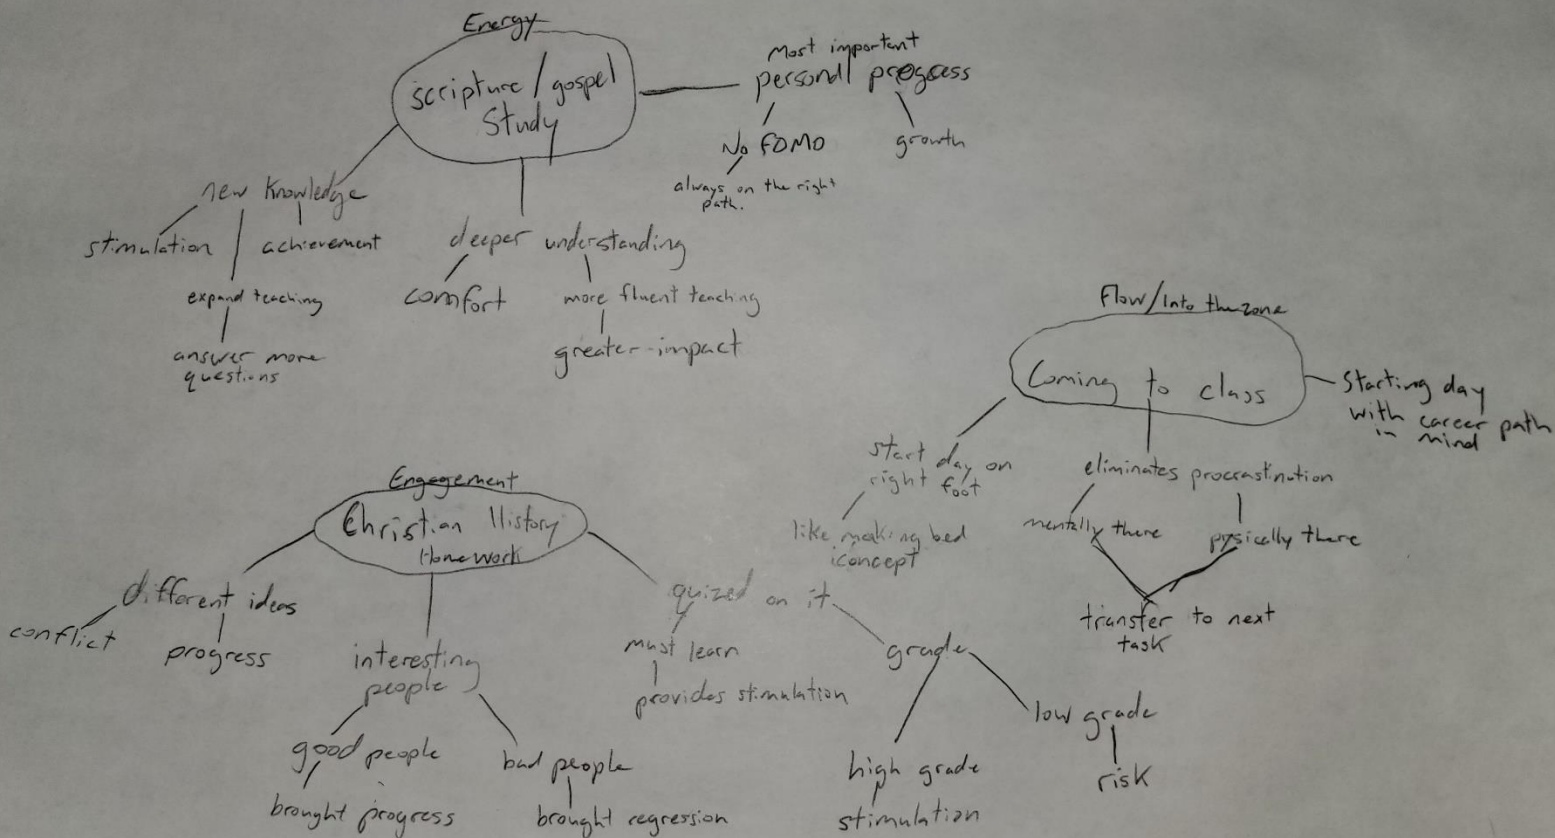 Energy
scripture / gospel
Study
Most important
personal progress
No FOMO
growth
always on the right
path.
new knowledge
stimulation
achievement
expand teaching
answer more
questions
deeper understanding
comfort
more fluent teaching
greater impact
Flow/Into the zone
Coming to class
Starting day
with career path
in mind
start day on
right foot
like making bed
concept
eliminates procrastination
mentally there
pysically there
transfer to next
task
Engagement
Christian History
Homework
different ideas
conflict
progress
interesting
people
good people
brought progress
bad people
brought regression
quized on it
must learn
provides stimulation
grade
high grade
stimulation
low grade
risk